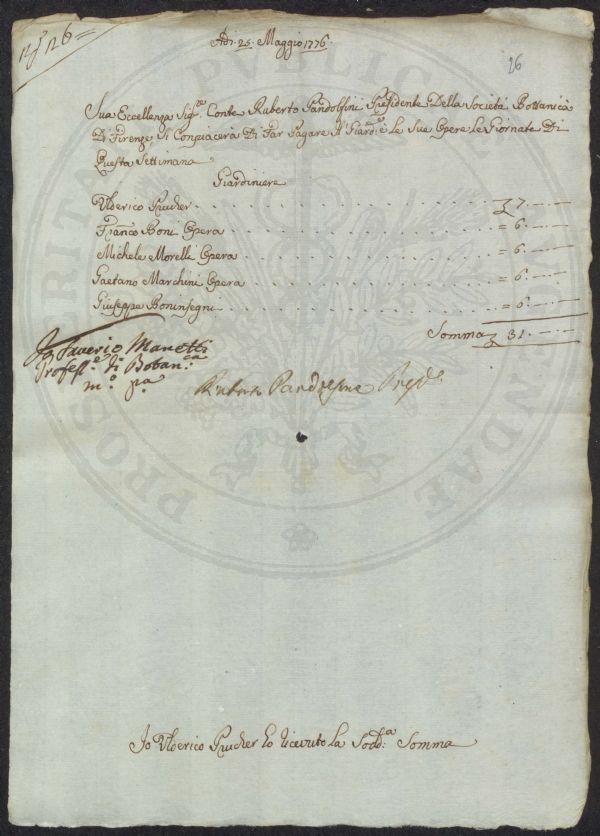 N.° 126=
26
Adì. 25. Maggio 1776.
Sua Eccellenza Sig.re Conte Ruberto Pandolfini Presidente Della Società Bottanica
Di Firenze Si Compiacerà Di Far Pagare Al Giard.re e le Sue Opere Le Giornate Di
Questa Settimana
Giardiniere
Ulderico Prucher . . . . . . . . . . £ 7. — —
Franco Boni Opera . . . . . . . . . . = 6. — —
Michele Morelli Opera . . . . . . . . . . = 6. — —
Gaetano Marchini Opera . . . . . . . . . . = 6. — —
Giuseppe Boninsegni . . . . . . . . . . = 6. — —
Somma £ 31. — —
Saverio Manetti
Profess.e di Botan.ca
m.o p.a
Ruberto Pandolfini Presid.e
Io Ulderico Prucher ho ricevuto la Sodd.a Somma
PUBLICAE
PROSPERITATI